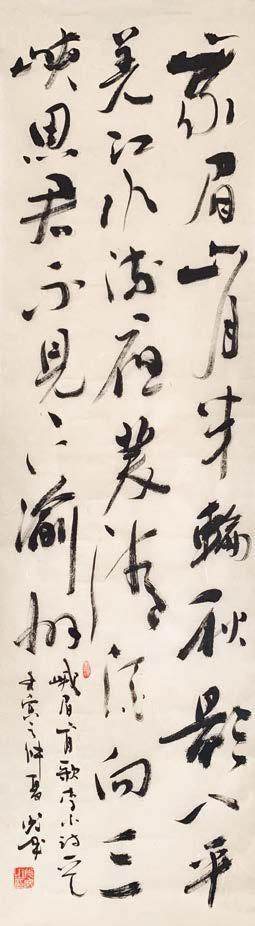 峨眉山月半輪秋影入平
羌江水流夜發清溪向三
峡思君不見下渝州
峨眉山月歌李白诗一首
壬寅之仲夏